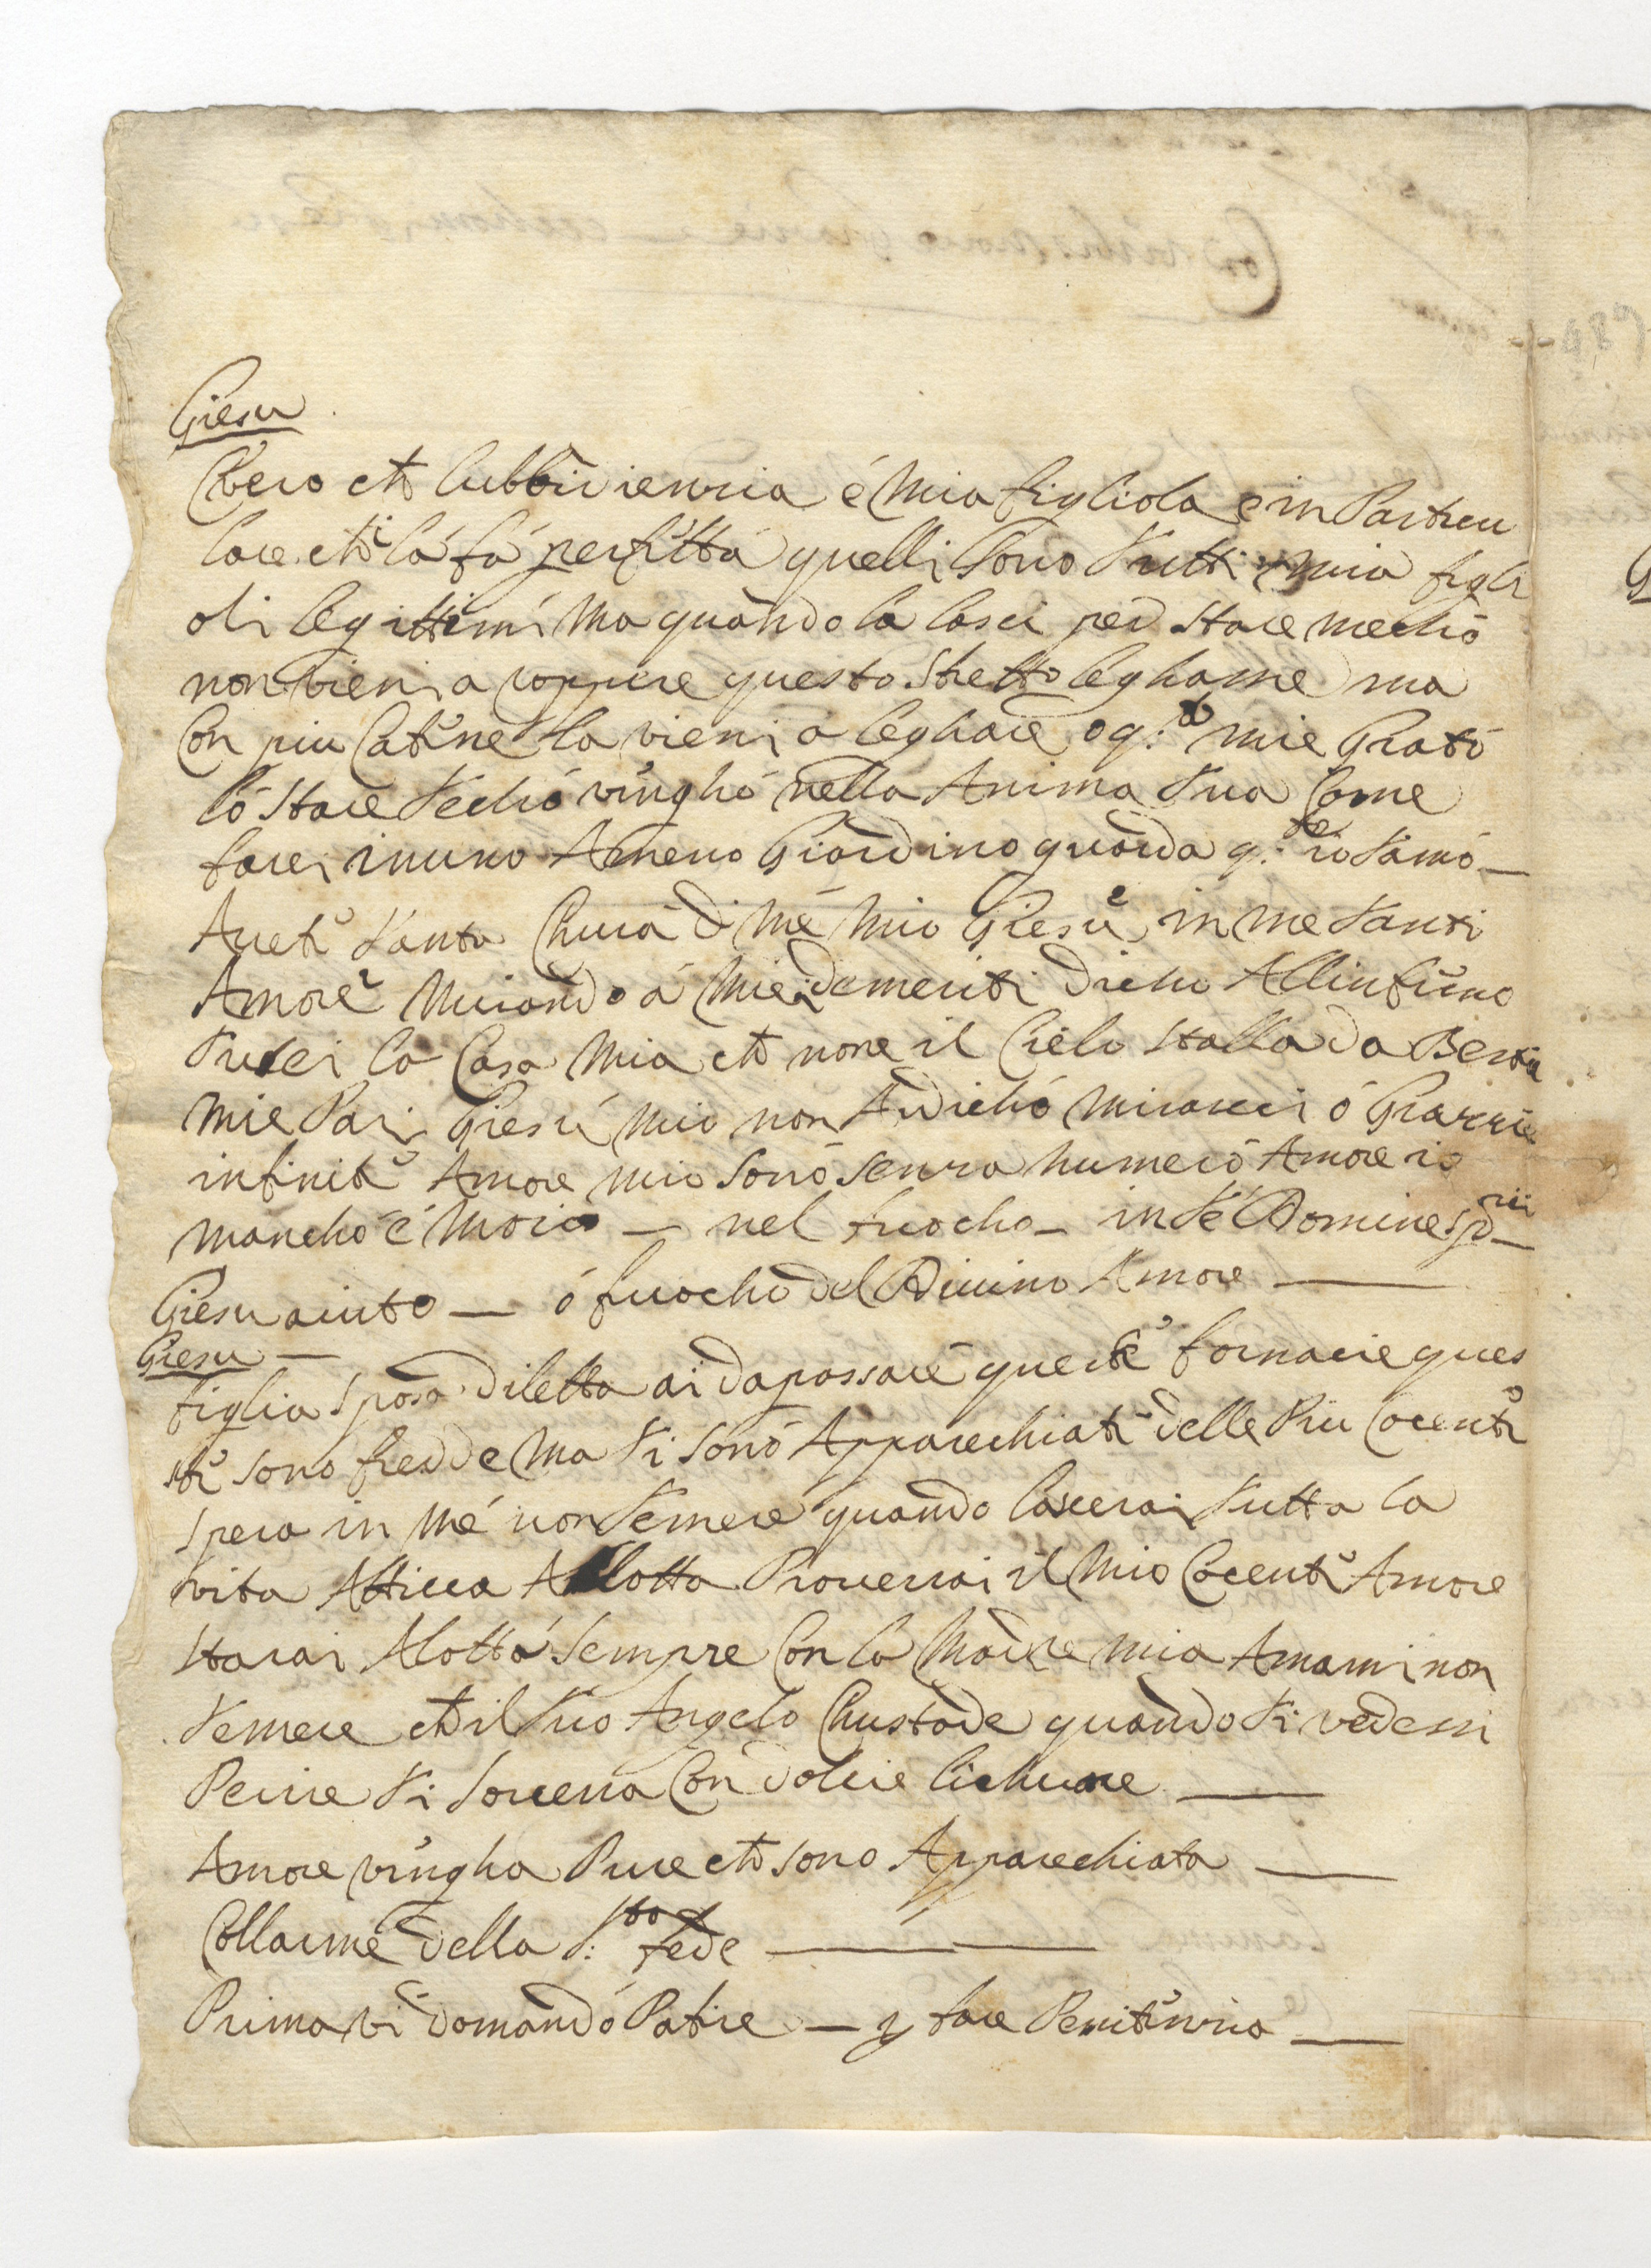 Giesu
Vero che l'ubbidienzia é mia figliola e in Particu
lare chi la fá perfetta quelli sono tutti mia figli
oli legittimi ma quando la lasci per stare mecho
non vieni a roppere questo stretto leghame ma
Con piu Catene la vieni a leghare o q:to mie Grato
lo stare techo vengho nella Anima tua Come
farei in uno Ameno Giardino guarda q:to io t'amo —
Avete tanta Chura di me mio Giesu in me tanti
Amore mirando a miei demeriti dicho All'infferno
sta la Casa mia che none il Cielo stalla da Bestia
mie Pari Giesu mio non A dicho miracci ó Grazzie
infinite Amore mio sono senza numero Amore io
mancho e moio — nel fuocho — in te Domine sp—
Giesu aiuto — ó fuocho del Divino Amore —
Giesu —
figlia Sposa diletta ai da passare queste fornacie ques
ste sono fredde ma ti sono Apparechiate delle Piu Cocenti
spera in me non temere quando lascerai tutta la
vita Attiva Allotta Proverrai il mio Cocente Amore
starai Alotta sempre Con la Madre mia Amami non
temere che il tuo Angelo Chustode quando ti vedessi
Perire ti soverra Con dolcie lichuore —
Amore vengha Pure che sono Apparechiata —
Coll'arme della S:ta fede —
Prima vi domando Patire — y fare Penitenzia —